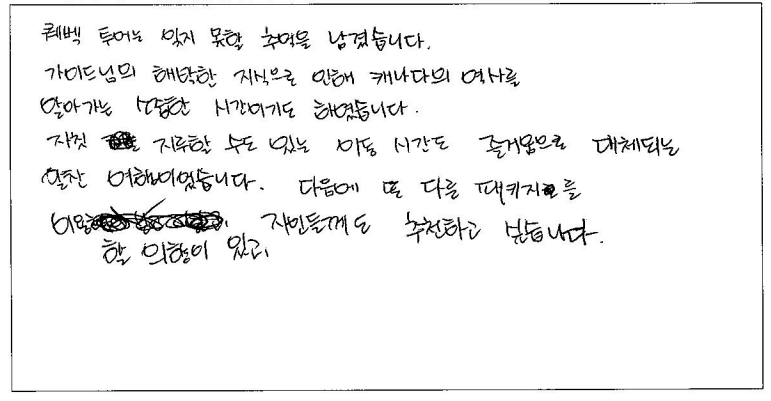 퀘벡 투어는 잊지 못할 추억을 남겼습니다.
가이드님의 해박한 지식으로 인해 캐나다의 역사를
알아가는 소중한 시간이기도 하였습니다.
자칫 지루할 수도 있는 이동 시간도 즐거움으로 대체되는
알찬 여행이었습니다. 다음에 또 다른 패키지를
이용 지인들께도 추천하고 싶습니다.
할 의향이 있고,